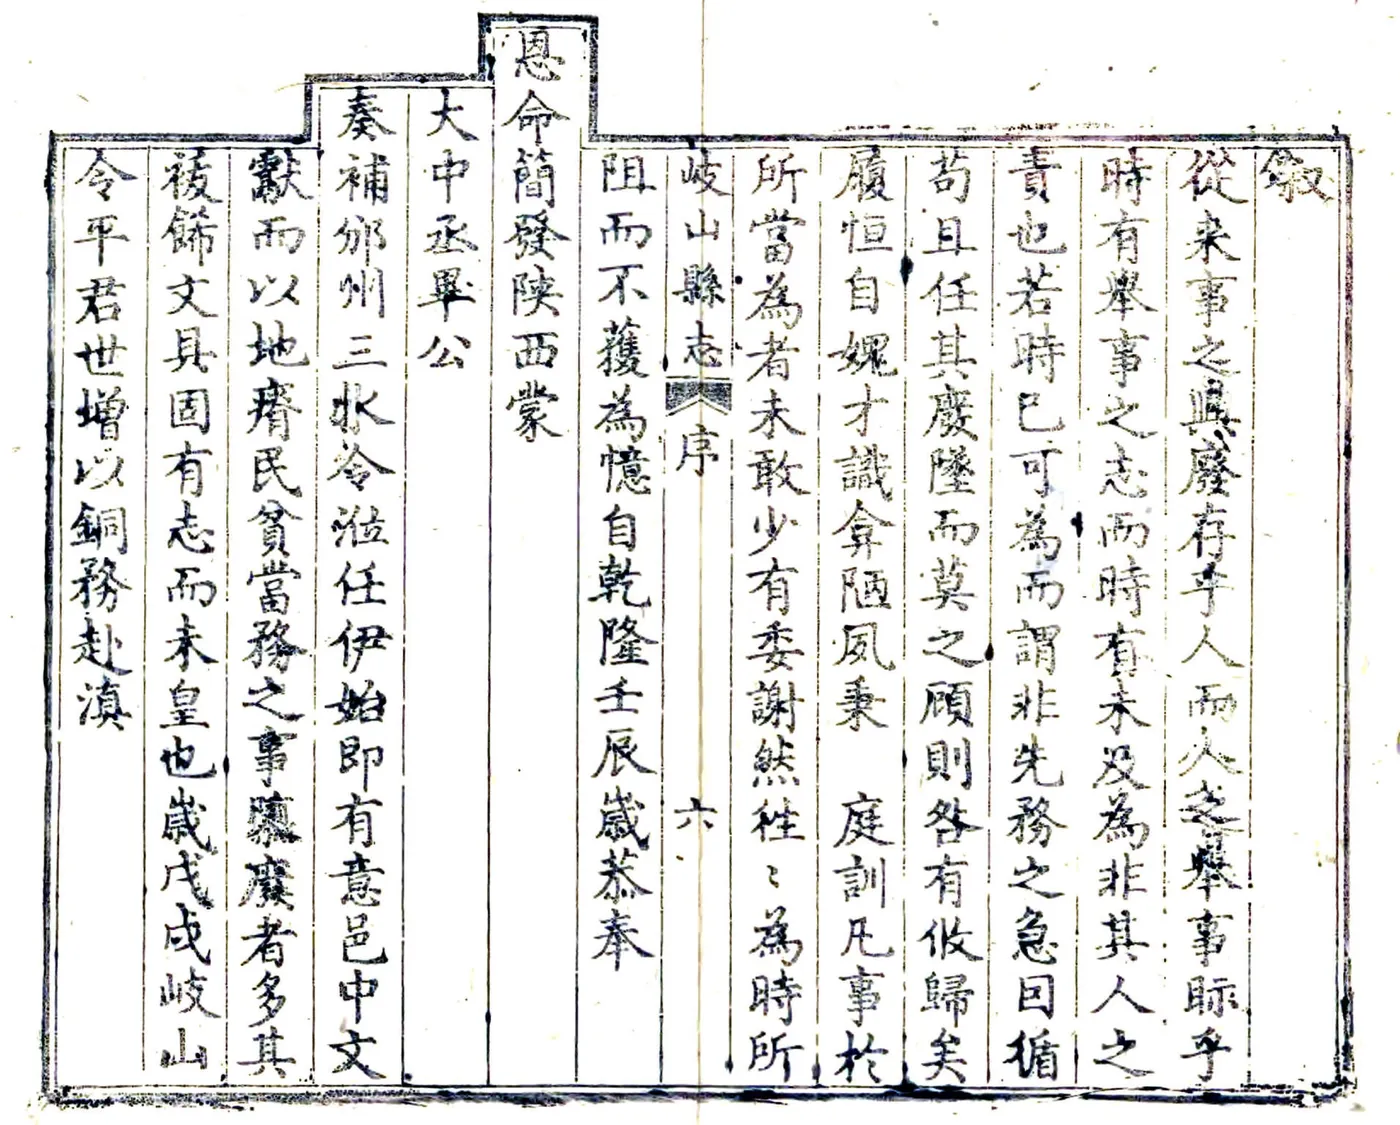 叙
從来事之興廢存乎人而人之舉事眎乎
時有舉事之志而時有未及為非其人之
責也若時已可為而謂非先務之急因循
苟且任其廢墜而莫之顧則咎有攸歸矣
履恒自媿才識弇陋夙秉　庭訓凡事於
所當為者未敢少有委謝然徃〻為時所
岐山縣志　序　六
阻而不獲為憶自乾隆壬辰歲恭奉
恩命簡發陝西蒙
大中丞畢公
奏補邠州三水令涖任伊始即有意邑中文
獻而以地瘠民貧當務之事隳廢者多其
祓飾文具固有志而未皇也歲戊戌岐山
令平君世增以銅務赴滇